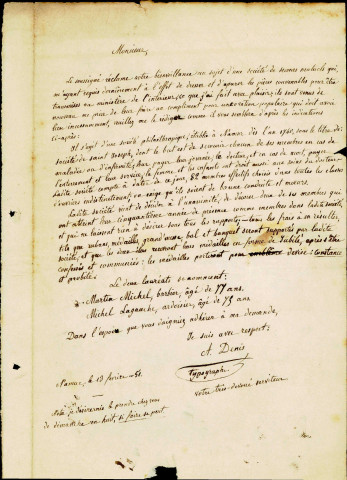 Monsieur,
Le soussigné réclame votre bienveillance au sujet d'une société de secours mutuels qui,
m'ayant requis dernièrement à l'effet de dresser et d'apurer les pièces convenables pour être
transmises au ministère de l'intérieur, ce que j'ai fait avec plaisir, ils sont venus de
nouveau me prier de leur faire un complément pour une action populaire qui doit avoir
lieu incessamment, veuillez me le rédiger comme il vous semblera d'après les indications
ci-après:
Il s'agit d'une société philanthropique, établie à Namur dès l'an 17, sous le titre de:
société de saint Joseph, dont le but est de secourir chacun de ses membres en cas de
maladie ou d'infirmité, leur payer leur journée, le docteur, et en cas de mort, payer
l'enterrement et leur service, la femme et les enfants ont droit aussi aux soins du docteur.
Ladite société compte à dater de ce jour, 88 membres effectifs choisis dans toutes les classes
d'ouvriers indistinctement, on exige qu'ils soient de bonne conduite et moeurs.
Ladite société vient de décider à l'unanimité, de décorer deux de ses membres qui
ont atteint leur cinquantième année de présence comme membres dans ladite société,
et qui ne laissent rien à désirer sous tous les rapports, tous les frais à en résulter,
tels que rubans, médailles, grand'messe, bal et banquet seront supportés par ladite
société, et que les deux élus recevront leurs médailles en forme de Jubilé, après s'être
confessés et communiés: les médailles porteront pour devise: Constance
et probité.
Les deux lauréats se nomment:
Martin Michel, barbier, âgé de 77 ans,
Michel Laganche, ardoisier, âgé de 75 ans
Dans l'espoir que vous daignerez adhérer à ma demande,
Je suis avec respect:
A. Denis
Typographe
votre très dévoué serviteur
Namur, le 13 février